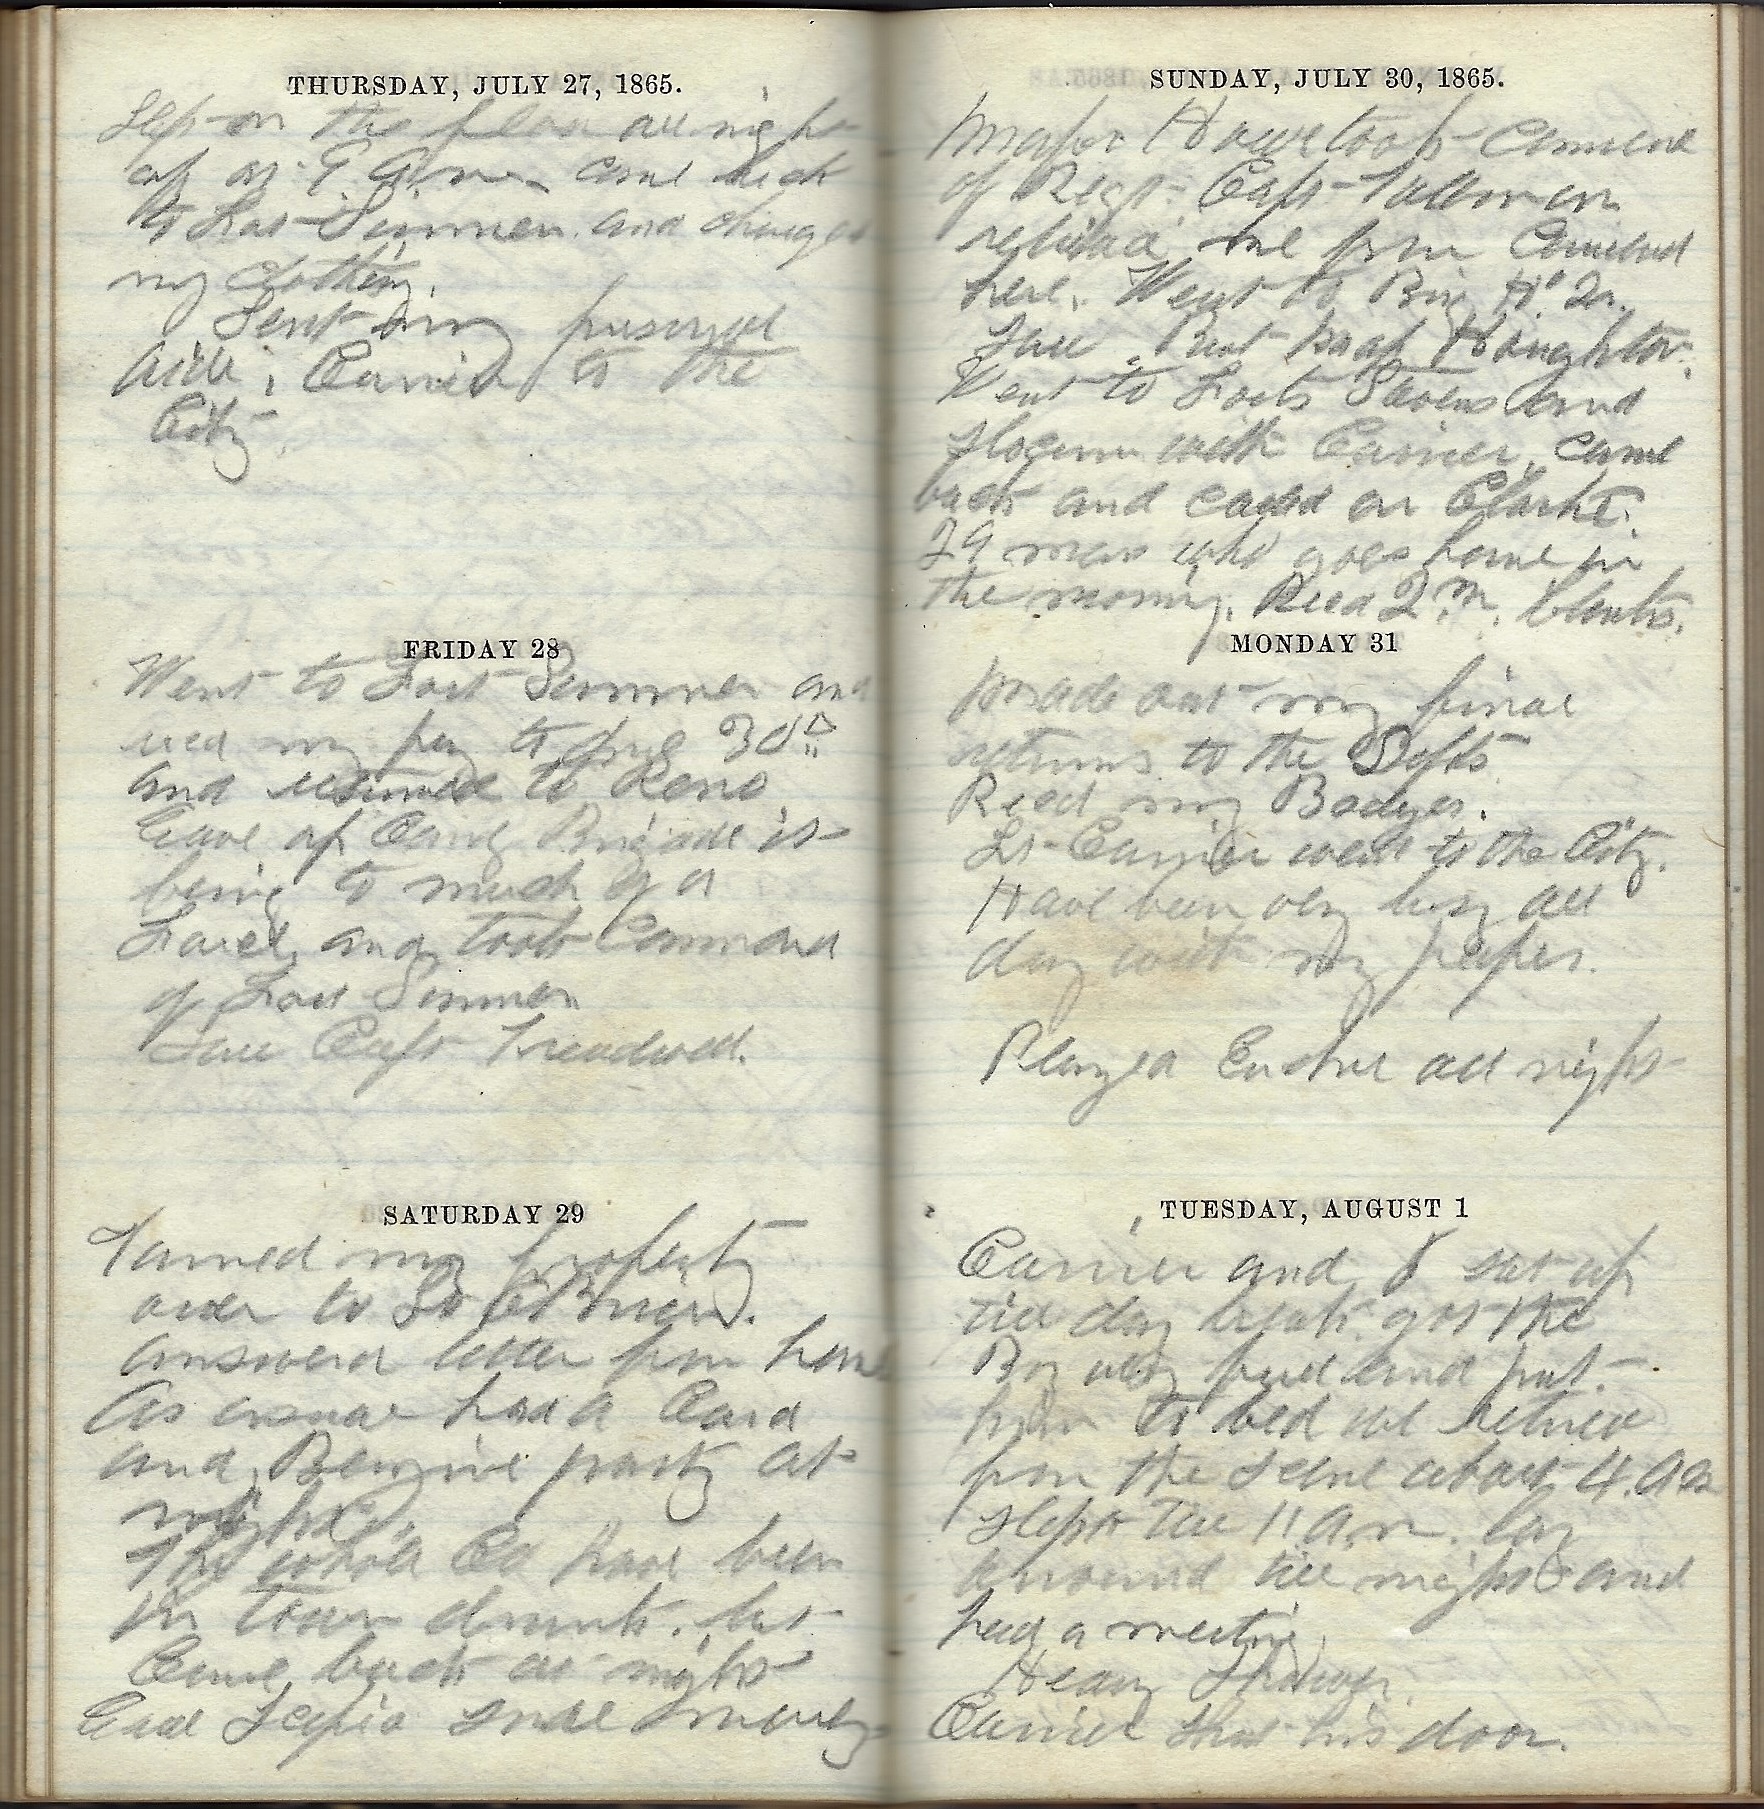 THURSDAY, JULY 27, 1865.
Slept on the floor all night
up at 9 came back
to Fort Sumner and changed
my clothing.
Sent my
with Carrier to the
City.
FRIDAY 28
Went to Fort Sumner and
recd my pay to June 30th
and returned to Reno
Gave up Brigade it
being to much of a
and took Command
of Fort Sumner
Saw Capt Treadwell.
SATURDAY 29
Turned my property
over to Lt OBrien.
answerd letter from home
As usual had a Card
and party at
night.
The whole Co have been
in town drunk. but
Came back at night
some money
SUNDAY, JULY 30, 1865.
Major Howe took Comend
of Regt. Capt Tallman
relieved me from Comend
here. Went to Brig Hd Qr.
Saw Houghton.
Went to Forts Stevens and
Slocum with Carrier. came
back and called on Clarke.
29 mass who goes home in
the morning. Recd Q.M. blanks.
MONDAY 31
Made out my final
returns to the Depts
Recd my Badges.
Lt Carrier went to the City.
Have been very busy all
day with my papers.
Played Euchre all night
TUESDAY, AUGUST 1
Carrier and I sat up
till day break. got the
Boy very full and put
him to bed we retired
from the scene about 4. am
slept till 11 a.m. lay
around till night and
had a meeting
Heavy Shower.
Carrier shut his door.